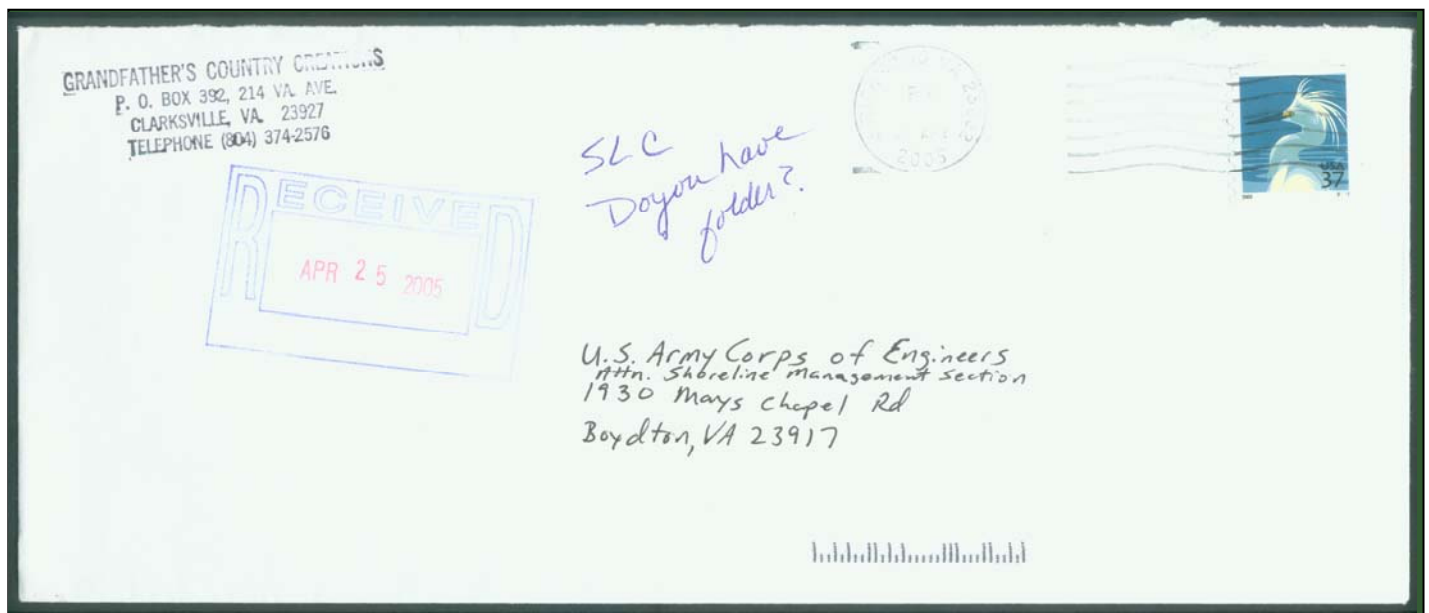 GRANDFATHER'S COUNTRY CREATIONS
P. O. BOX 392, 214 VA. AVE.
CLARKSVILLE, VA. 23927
TELEPHONE (804) 374-2576
RECEIVED
APR 25 2005
SLC
Do you have
folder?
2005
USA
37
U.S. Army Corps of Engineers
Attn. Shoreline Management Section
1930 Mays Chapel Rd
Boydton, VA 23917